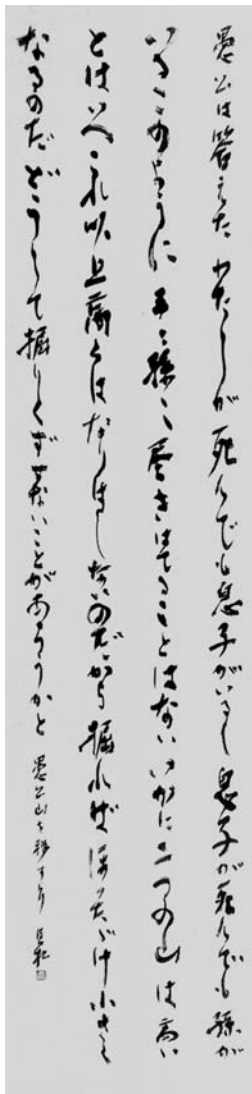 愚公は答えた わたしが死んでも息子がいるし 息子が死んでも孫が
いる このように子々孫々尽きはてることはない いかに二つの山は高い
とはいへ これ以上高くはなりはしないのだから 掘れば深ただけ小さく
なるのだ どうして掘りくずせないことがあろうかと 愚公山を移すより